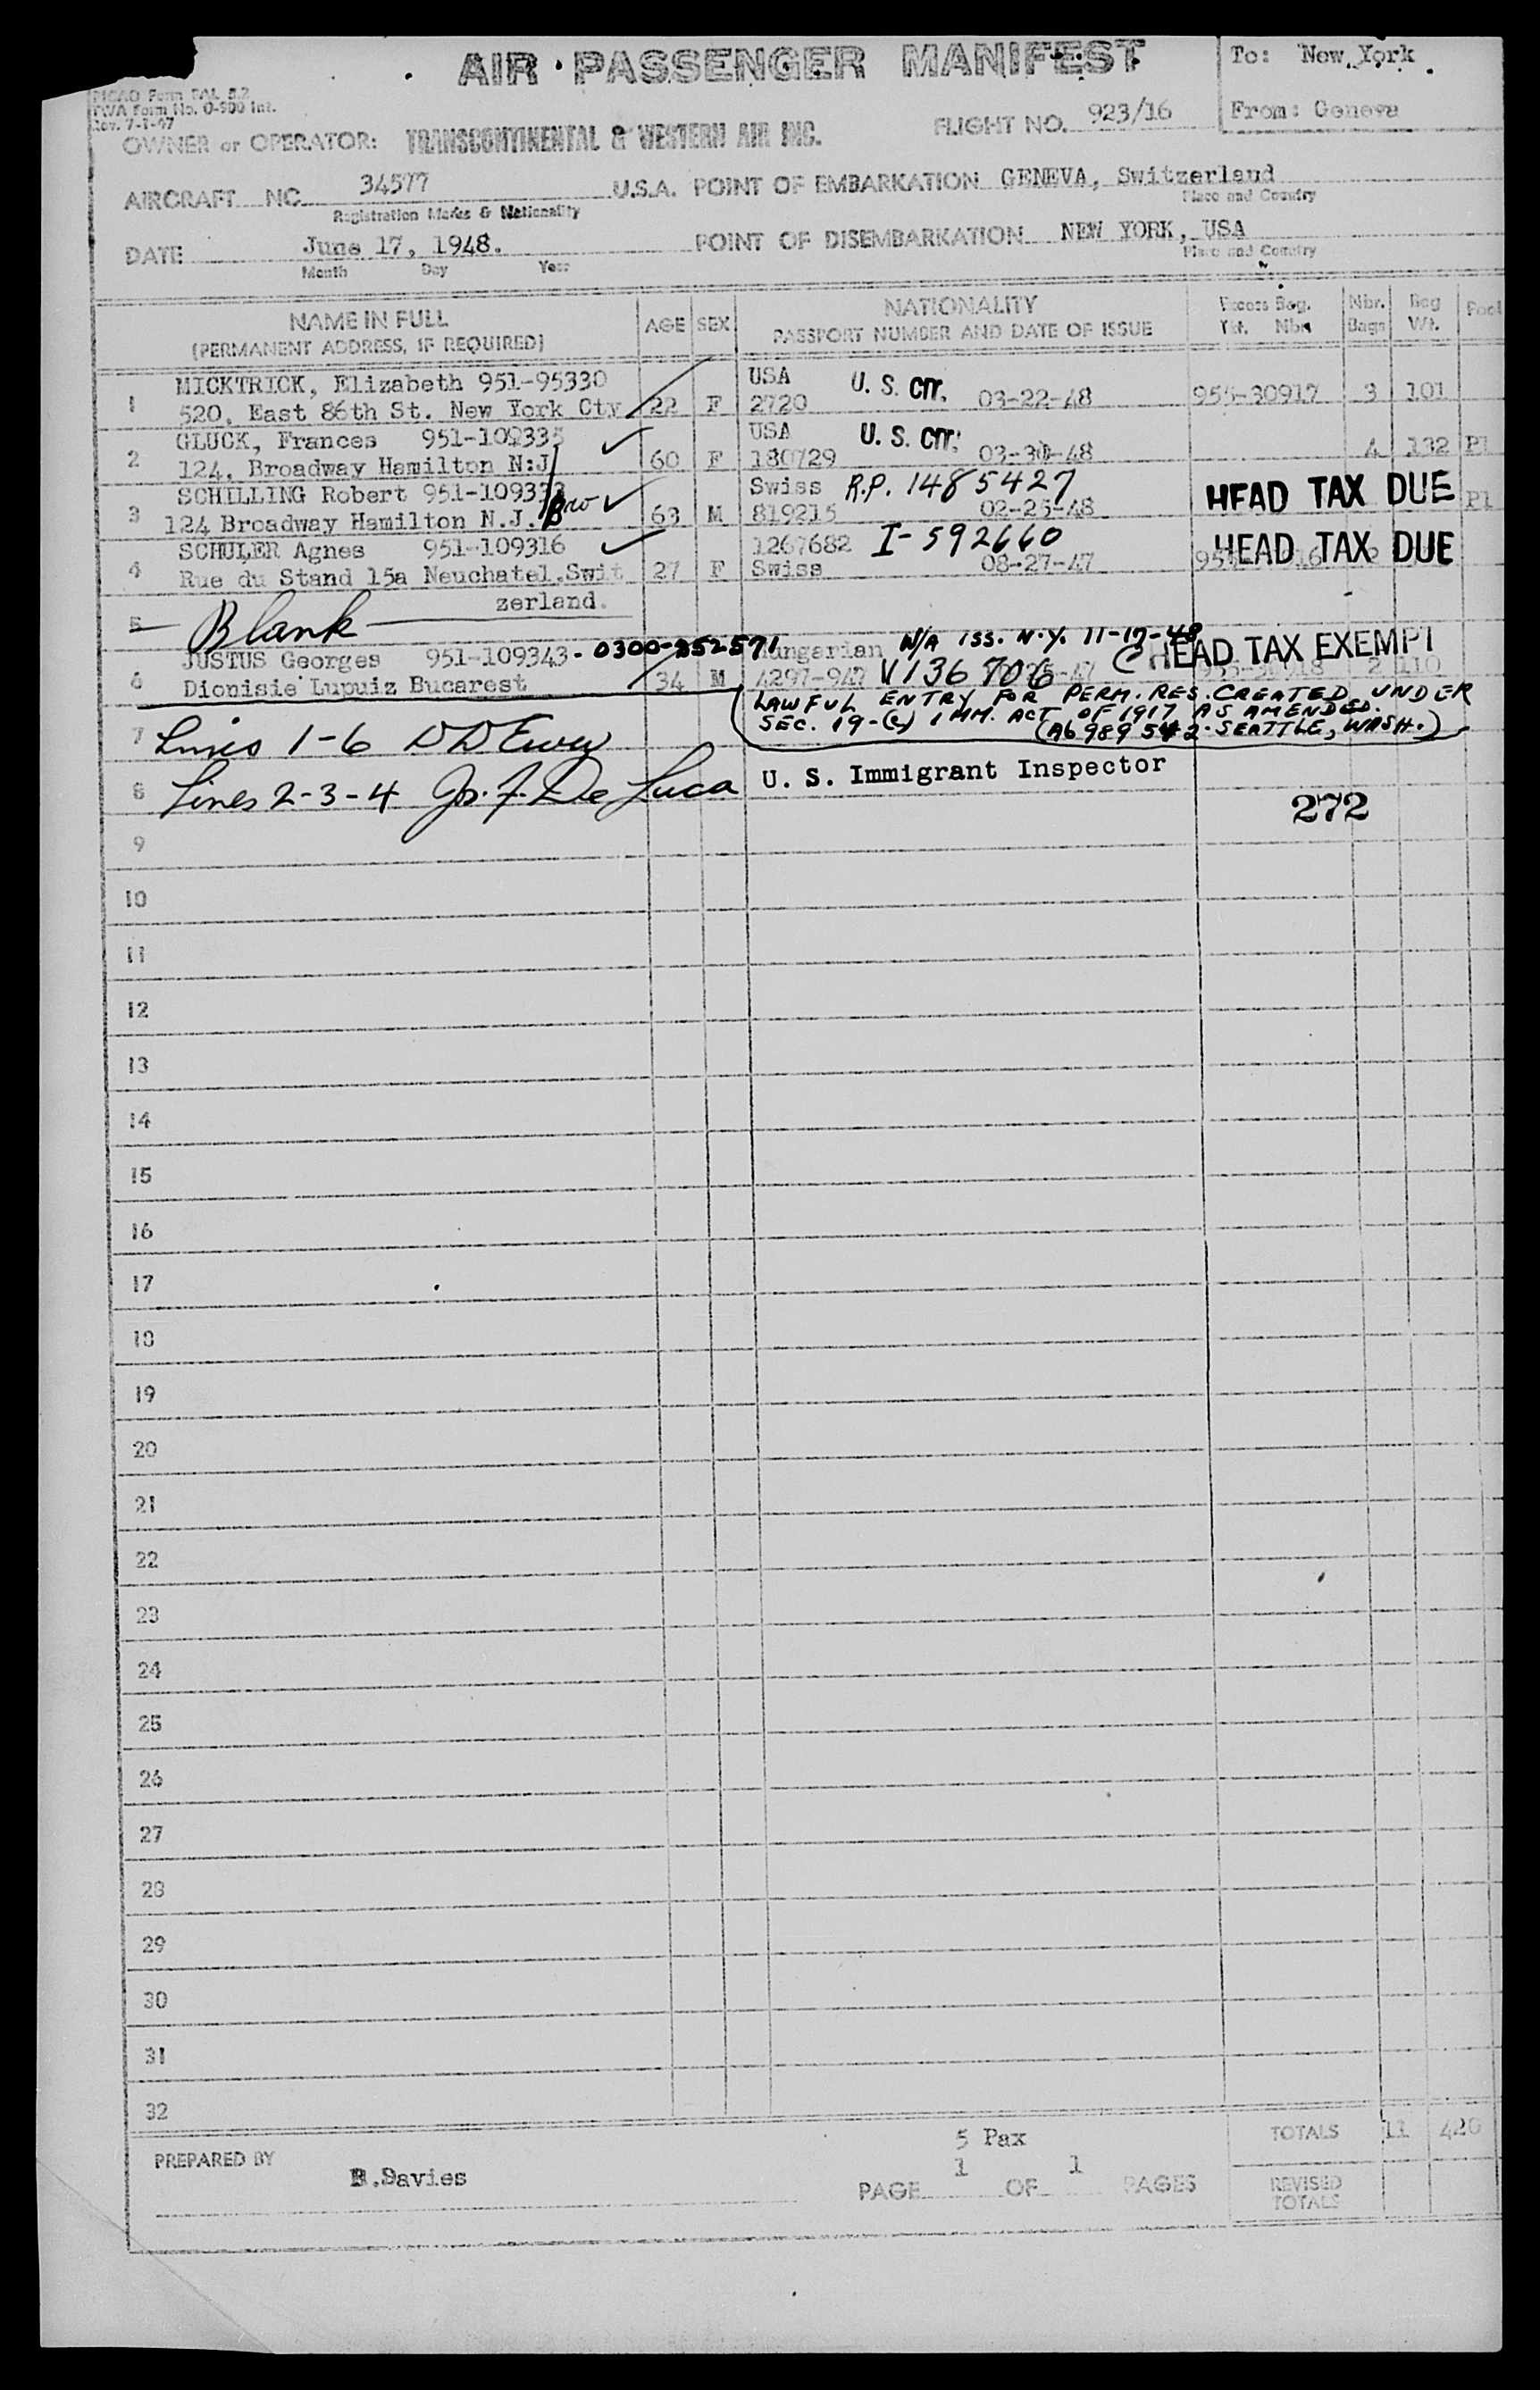 AIR PASSENGER MANIFEST
To: New York
From: Geneva
PICAO Form PAL 8.2
TWA Form No. 0-500 Int.
Rev. 7-1-47
FLIGHT NO. 923/16
OWNER or OPERATOR: TRANSCONTINENTAL & WESTERN AIR INC.
AIRCRAFT NC 34577 U.S.A. POINT OF EMBARKATION GENEVA, Switzerland
Registration Marks & Nationality Place and Country
DATE June 17, 1948. POINT OF DISEMBARKATION NEW YORK, USA
Month Day Year Place and Country
NAME IN FULL AGE SEX NATIONALITY Excess Bag. Nbr. Bag Pool
(PERMANENT ADDRESS, IF REQUIRED) PASSPORT NUMBER AND DATE OF ISSUE Tkt. Nbr. Bags Wt.
MICKTRICK, Elizabeth 951-95330 USA U. S. CIT.
1 520, East 86th St. New York Cty 22 F 2720 03-22-48 955-30917 3 101
GLUCK, Frances 951-109335 USA U. S. CIT.
2 124, Broadway Hamilton N:J 60 F 180729 03-30-48 4 132 Pl
SCHILLING Robert 951-109333 Swiss R.P. 1485427 HEAD TAX DUE
3 124 Broadway Hamilton N.J. Bro 63 M 819215 02-25-48 Pl
SCHULER Agnes 951-109316 1267682 I-592660 HEAD TAX DUE
4 Rue du Stand 15a Neuchatel.Swit 27 F Swiss 08-27-47
zerland.
5 Blank
JUSTUS Georges 951-109343-0300-252571 Hungarian N/A ISS. N.Y. 11-17-48 HEAD TAX EXEMPT
6 Dionisie Lupuiz Bucarest 34 M 4297-947 V1367806 -47 955-30918 2 110
LAWFUL ENTRY FOR PERM. RES. CREATED UNDER
SEC. 19-(c) IMM. ACT OF 1917 AS AMENDED.
(A6989542-SEATTLE, WASH.)
7 Lines 1-6
8 Lines 2-3-4 Jos. F. De Luca U. S. Immigrant Inspector
272
9
10
11
12
13
14
15
16
17
18
19
20
21
22
23
24
25
26
27
28
29
30
31
32
5 Pax TOTALS 11 420
PREPARED BY B.Davies
PAGE 1 OF 1 PAGES REVISED
TOTALS